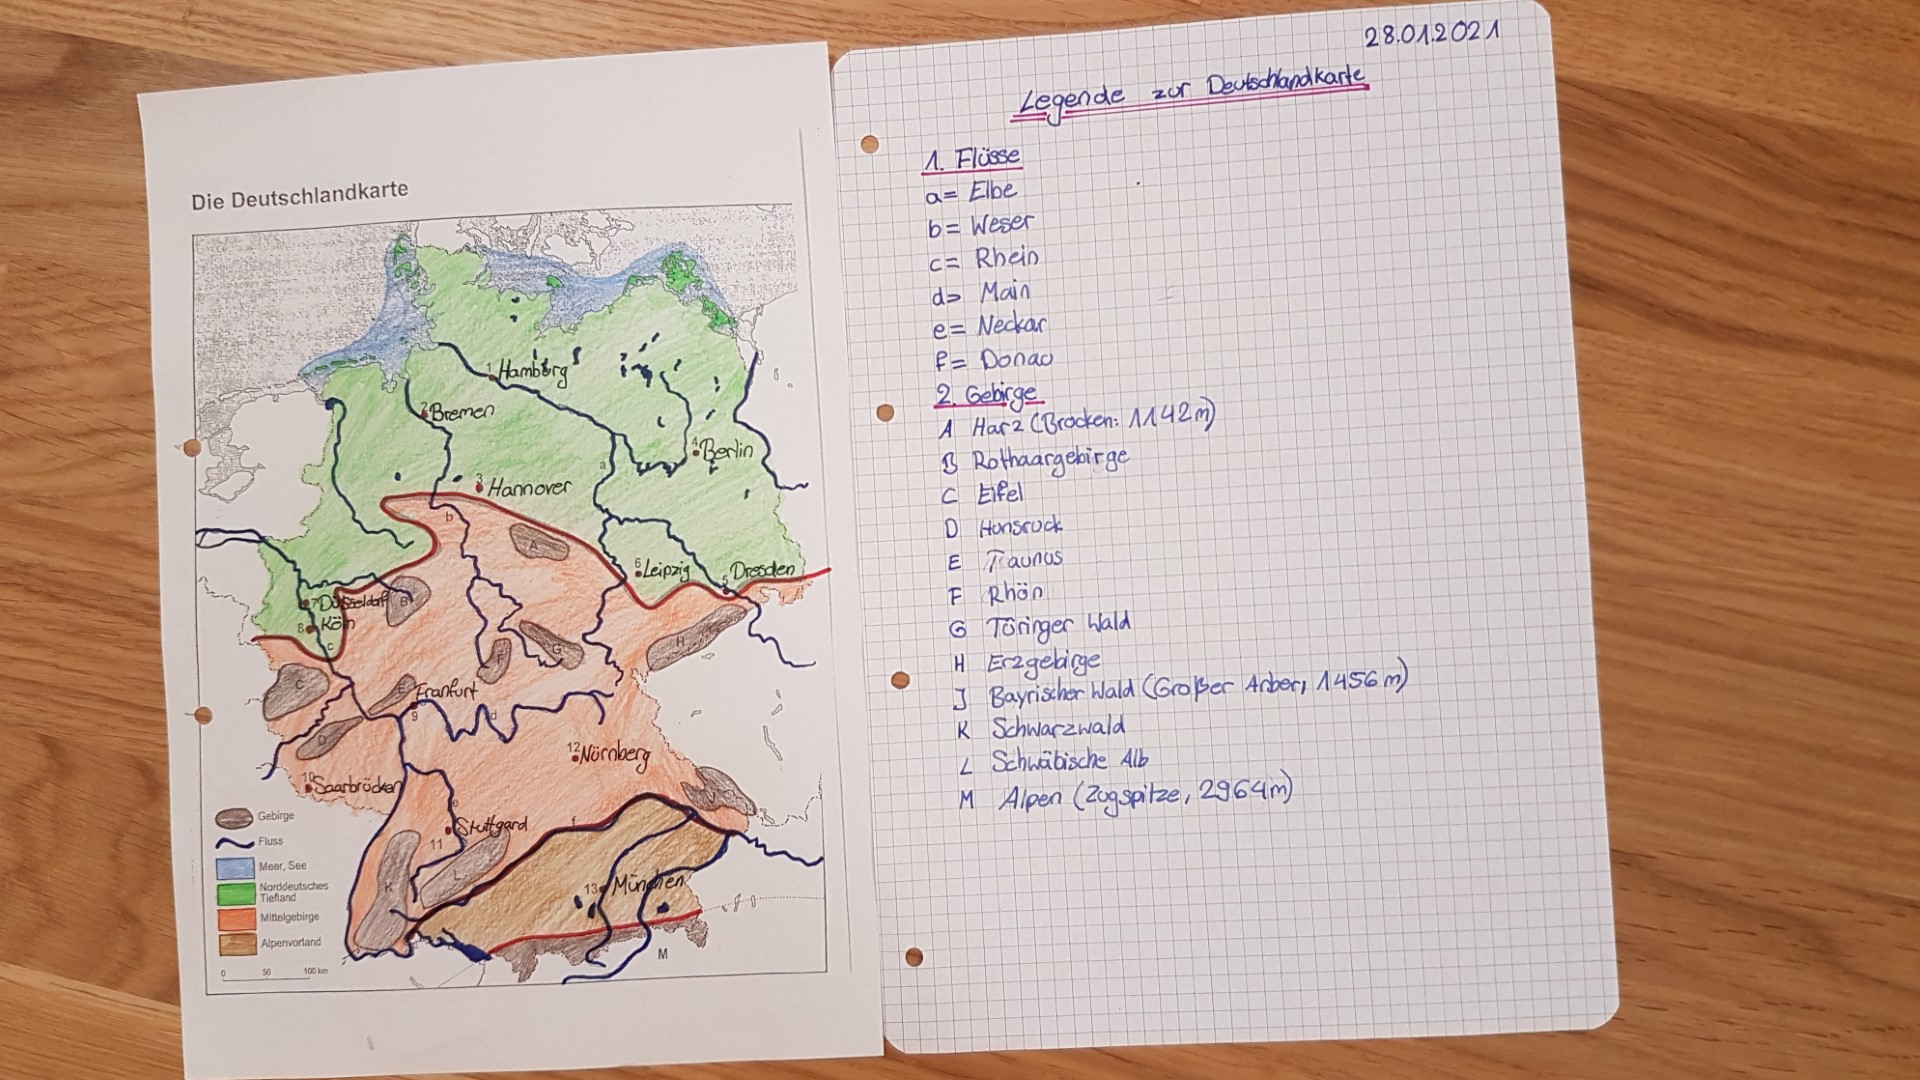 Die Deutschlandkarte
1 Hamburg
2 Bremen
4 Berlin
a
3 Hannover
b
A
6 Leipzig
5 Dresden
7 Düsseldorf
B
8 Köln
c
F
G
H
C
E
Frankfurt
9
d
D
12 Nürnberg
10 Saarbrücken
J
e
Stuttgard
f
11
K
L
13 München
M
Gebirge
Fluss
Meer, See
Norddeutsches
Tiefland
Mittelgebirge
Alpenvorland
0 50 100 km
28.01.2021
Legende zur Deutschlandkarte
1. Flüsse
a= Elbe
b= Weser
c= Rhein
d= Main
e= Neckar
f= Donau
2. Gebirge
A Harz (Brocken: 1142m)
B Rothaargebirge
C Eifel
D Hunsrück
E Taunus
F Rhön
G Türinger Wald
H Erzgebirge
J Bayrischer Wald (Großer Arber, 1456m)
K Schwarzwald
L Schwäbische Alb
M Alpen (Zugspitze, 2964m)